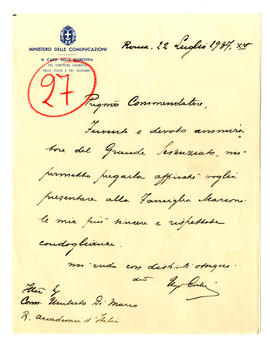 MINISTERO DELLE COMUNICAZIONI
IL CAPO DELLA SEGRETERIA
DEL DIRETTORE GENERALE
DELLE POSTE E DEI TELEGRAFI
Roma, 22 Luglio 1937. XV
27
Pregmo Commendatore,
Fervente e devoto ammira
tore del Grande Scienziato, mi
permetto pregarla affinchè voglia
presentare alla Famiglia Marconi
le mie più sincere e rispettose
condoglianze.
mi creda con distinti ossequi
Comm. Umberto Di Marco
R. Accademia d'Italia